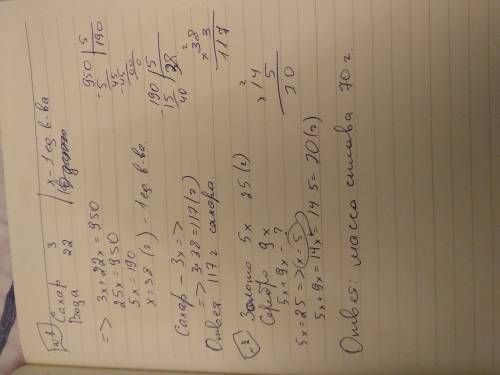 №1
Сахар 3 | x – 1 ед. в-ва
Вода 22
=> 3x + 22x = 950
25x = 950
5x = 190
x = 38 (г) – 1 ед. в-ва
950 | 5
-5 | 190
45
-45
00
0
190 | 5
-15 | 38
40
Сахар – 3x =>
=> 3·38 = 117 (г)
Ответ 117 г сахара.
2
x 38
3
117
№2
Золото 5x 25 (г)
Серебро 9x
5x + 9x - ?
5x = 25 => (x = 5)
5x + 9x = 14x = 14·5 = 70 (г)
2
x 14
5
70
Ответ: масса сплава 70 г.